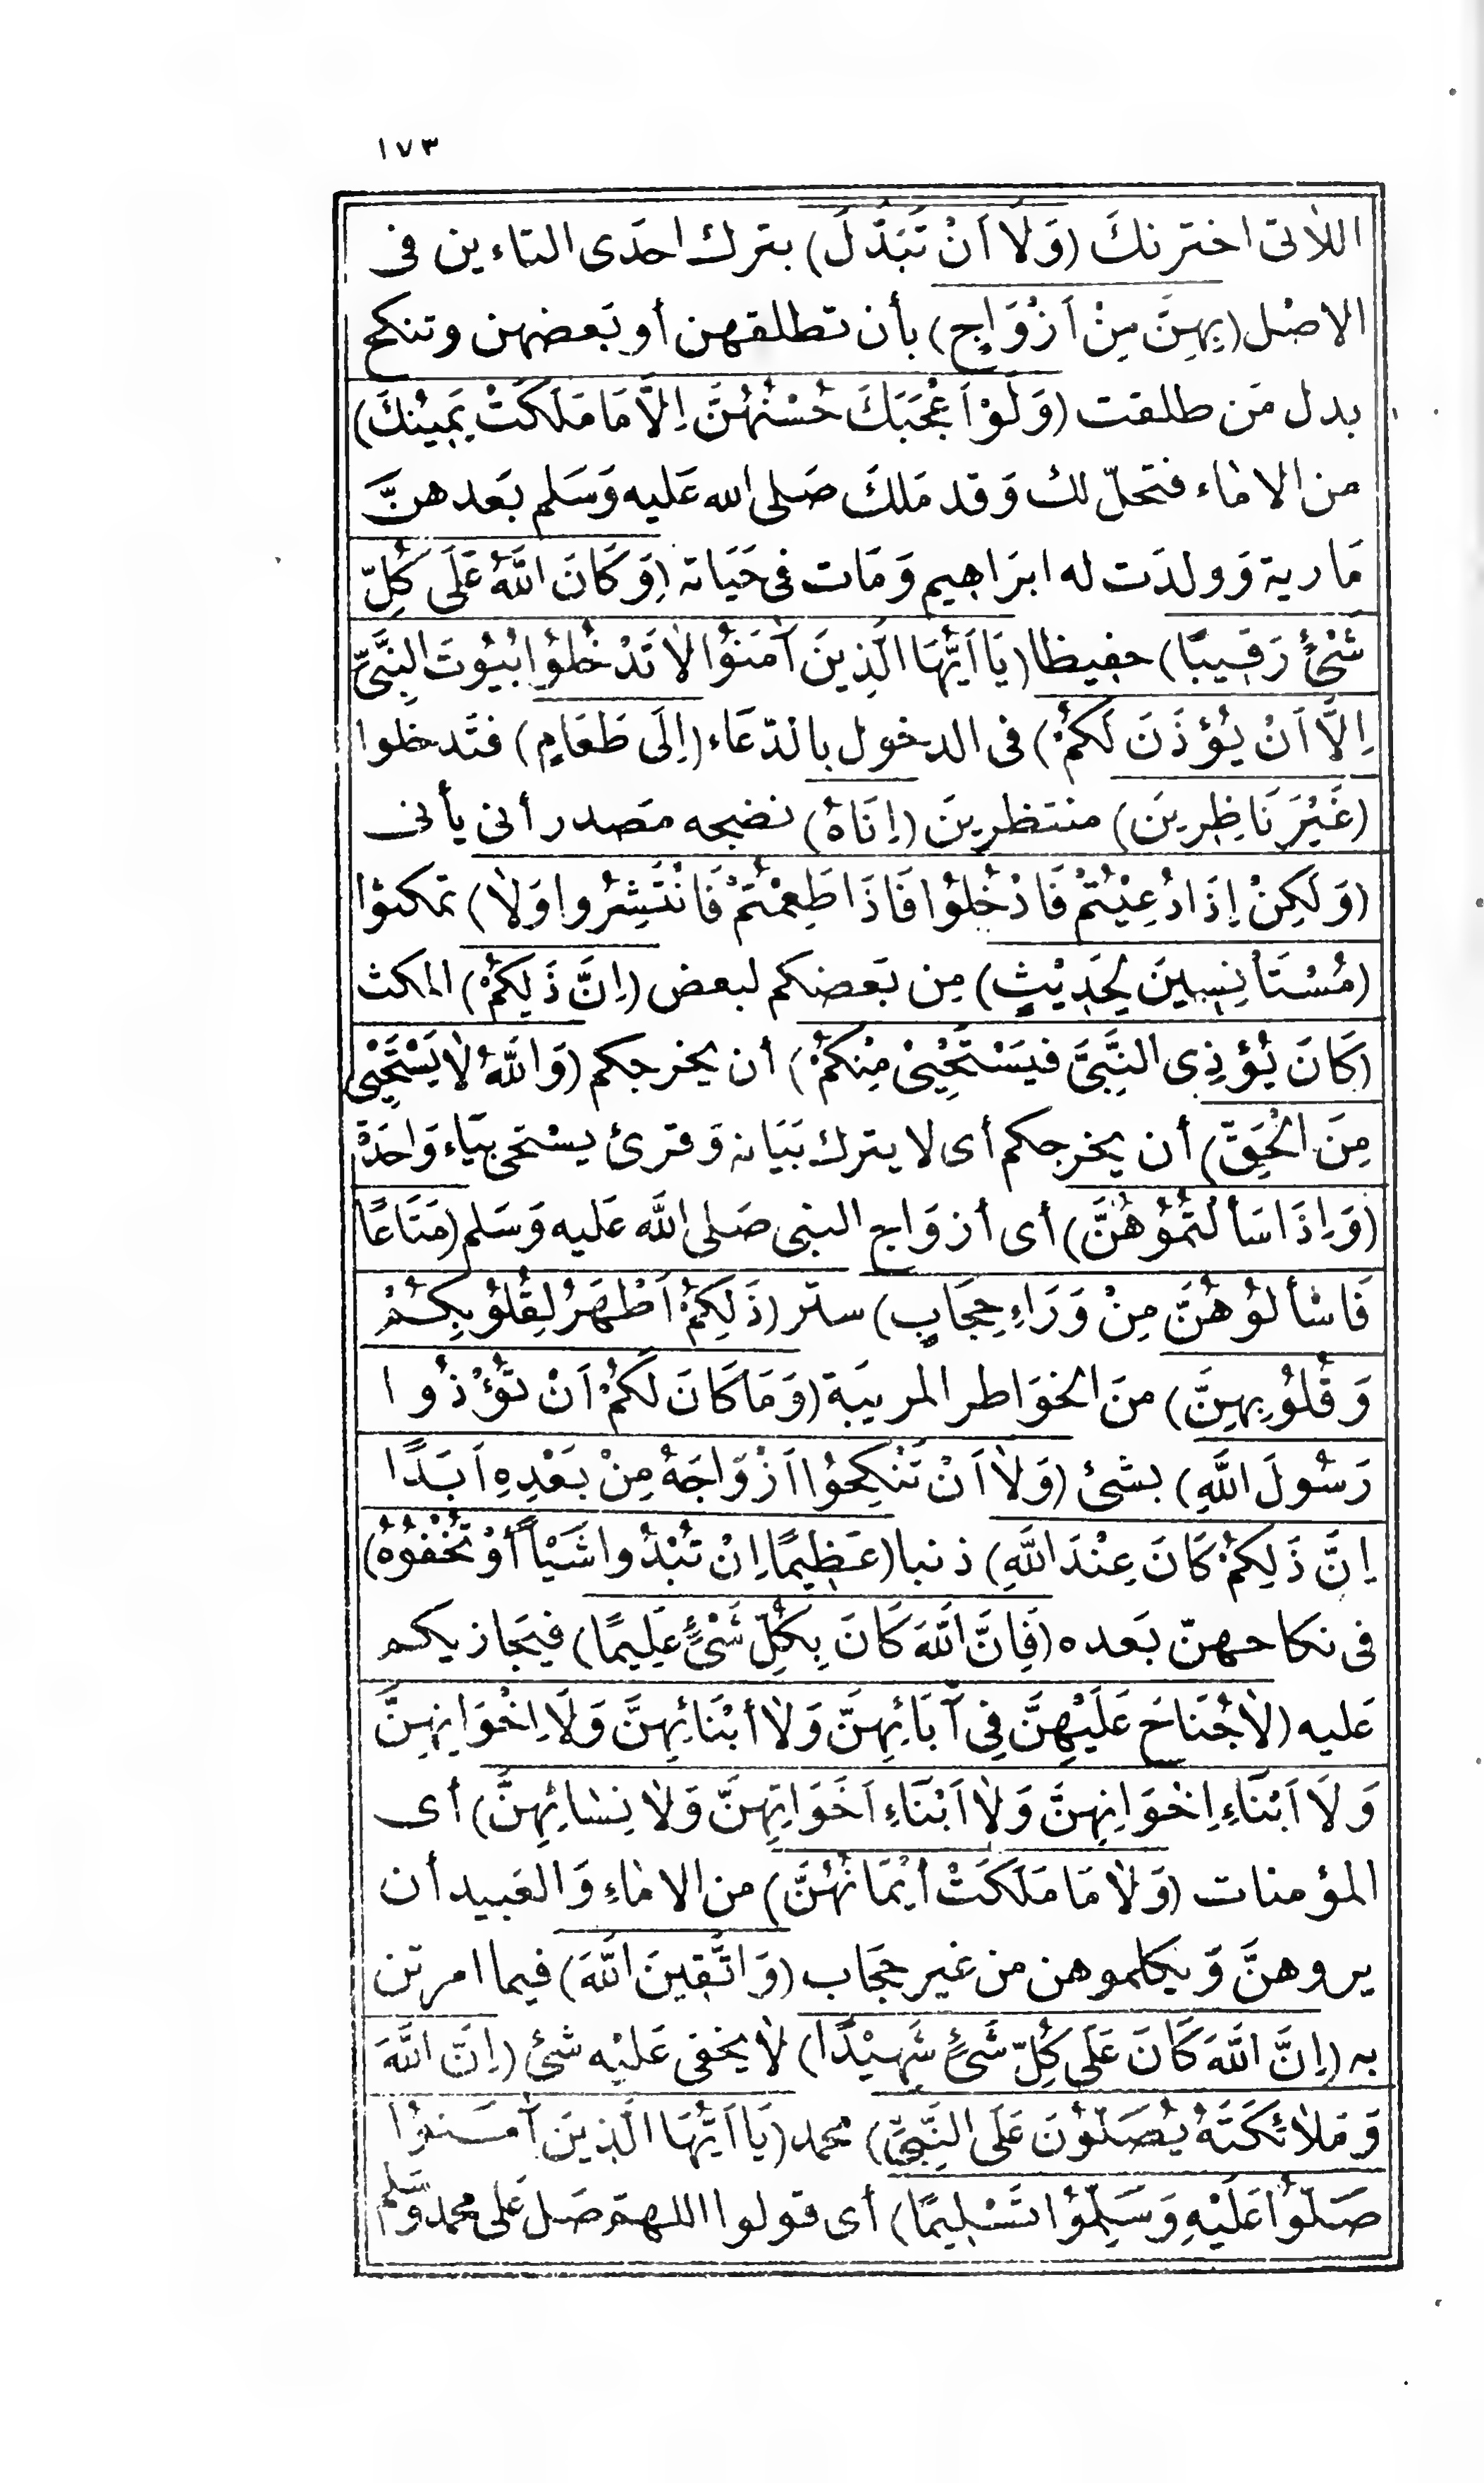 ١٧٣
اللاتى اخترنكَ (وَلَا اَنْ تَبَدَّلَ) بترك احدَى التاءين فى
الاصْل (بِهِنَّ مِنْ اَزْوَاجٍ) بأن تطلقهن أو بَعضهن وتنكح
بدل مَن طلقت (وَلَوْ اَعْجَبَكَ حُسْنُهُنَّ اِلَّا مَا مَلَكَتْ يَمِينُكَ)
من الامَاء فتحلّ لك وَقد مَلكَ صَلى الله عَليه وَسَلم بَعدهنَّ
مَارية وَولدَت له ابرَاهيم وَمَات فى حَيَاته (وَكَانَ اللَّهُ عَلَى كُلِّ
شَىْءٍ رَقِيبًا) حفيظا (يَا اَيُّهَا الَّذِينَ آمَنُوْا لَا تَدْخُلُوْا بُيُوتَ النَّبِىِّ
اِلَّا اَنْ يُؤْذَنَ لَكُمْ) فى الدخول بالدّعَاء (اِلَى طَعَامٍ) فتَدخلوا
(غَيْرَ نَاظِرِينَ) منتظرينَ (اِنَاهُ) نضجه مَصدر أنى يأنى
(وَلَكِنْ اِذَا دُعِيْتُمْ فَادْخُلُوْا فَاذَا طَعِمْتُمْ فَانْتَشِرُوا وَلَا) تمكثوْا
(مُسْتَأْنِسِينَ لِحَدِيْثٍ) مِن بَعضكم لبعض (اِنَّ ذَلِكُمْ) المكث
(كَانَ يُؤْذِى النَّبِىَّ فيَسْتَحْيِىْ مِنْكُمْ) أن يخرجكم (وَاللَّهُ لَا يَسْتَحْيِى
مِنَ الْحَقِّ) أن يخرجكم أى لا يترك بَيَانه وَقرئ يستحى بيَاء وَاحدَة
(وَاِذَا سَأَلْتُمُوْهُنَّ) أى أزوَاج النبى صَلى اللَّه عَليه وَسَلم (مَتَاعًا
فَاسْأَلُوْهُنَّ مِنْ وَرَاءِ حِجَابٍ) ستر (ذَلِكُمْ اَطْهَرُ لِقُلُوْبِكُمْ
وَقُلُوْبِهِنَّ) منَ الخوَاطر المريبَة (وَمَا كَانَ لَكُمْ اَنْ تُؤْذُوا
رَسُولَ اللَّهِ) بشئ (وَلَا اَنْ تَنْكِحُوْا اَزْوَاجَهُ مِنْ بَعْدِهِ اَبَدًا
اِنَّ ذَلِكُمْ كَانَ عِنْدَ اللَّهِ) ذنبا (عَظِيمًا اِنْ تُبْدُوا شَيْاً أَوْ تُخْفُوْهُ)
فى نكاحهنّ بَعده (فَاِنَّ اللَّهَ كَانَ بِكُلِّ شَىْءٍ عَلِيمًا) فيجَازيكم
عَليه (لَا جُنَاحَ عَلَيْهِنَّ فِى آبَائِهِنَّ وَلَا أَبْنَائِهِنَّ وَلَا اِخْوَانِهِنَّ
وَلَا اَبْنَاءِ اِخْوَانِهِنَّ وَلَا اَبْنَاءِ اَخَوَاتِهِنَّ وَلَا نِسَائِهِنَّ) أى
المؤمنات (وَلَا مَا مَلَكَتْ أَيْمَانُهُنَّ) من الامَاءِ وَالعَبيد أن
يروهنَّ وَيكلموهن من غير حجَاب (وَاتَّقِينَ اللَّهَ) فيما امرتن
به (اِنَّ اللَّهَ كَانَ عَلَى كُلِّ شَىْءٍ شَهِيْدًا) لَا يخفى عَليْه شئ (اِنَّ اللَّهَ
وَمَلَائكَتَهُ يُصَلّوْنَ عَلَى النَّبِىِّ) محمد (يَا اَيُّهَا الَّذِينَ آمَنوُا
صَلّوْا عَلَيْهِ وَسَلِّمُوْا تَسْلِيمًا) أى قولوا اللهمّ صَل عَلى محمد وَسَلم